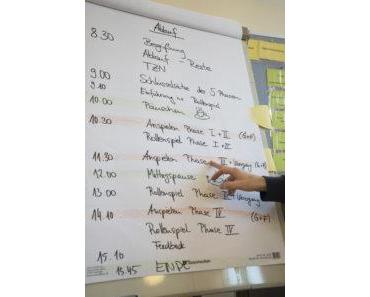 Ablauf
8.30 Begrüßung
Ablauf - Reste
TZN
9.00 Schlüsselsätze der 5 Phasen
9.10 Einführung in Rollenspiel
10.00 Päuschen
10.30 Anspielen Phase I + II (G+F)
Rollenspiel Phase I + II
11.30 Anspielen Phase III + Übergang (G+F)
12.00 Mittagspause
13.00 Rollenspiel Phase III + Übergang
14.10 Anspielen Phase IV (G+F)
Rollenspiel Phase IV
Feedback
15.10
15.45 ENDE